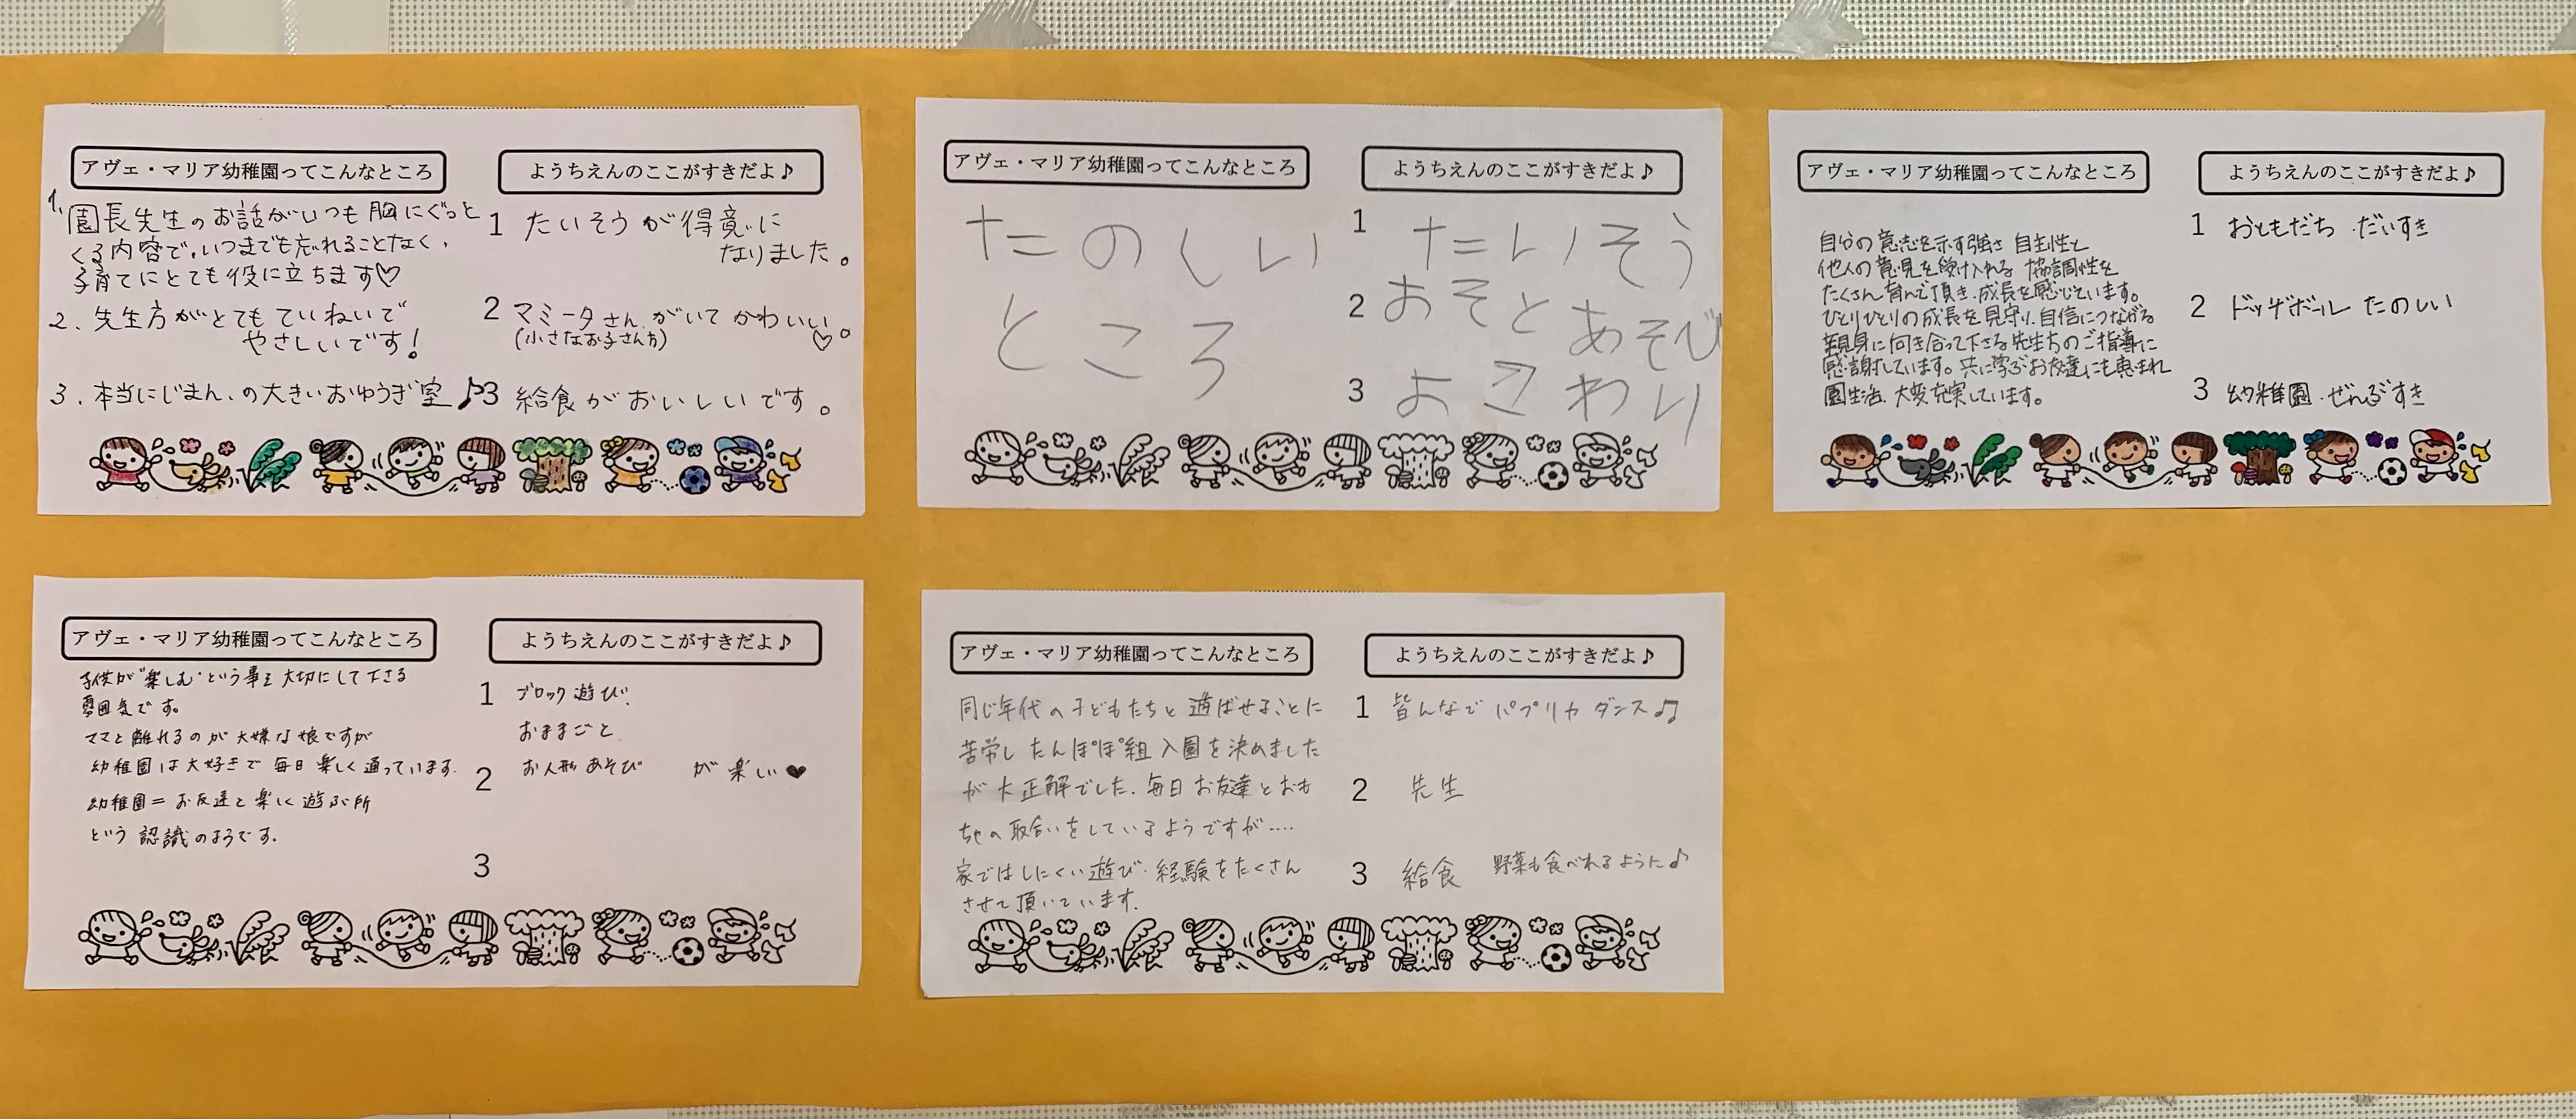 アヴェ・マリア幼稚園ってこんなところ
1. 園長先生のお話がいつも胸にぐっと
くる内容で、いつまでも忘れることなく、
子育てにとても役に立ちます♡
2. 先生方がとてもていねいで
やさしいです!
3. 本当にじまんの大きいおゆうぎ室♪
ようちえんのここがすきだよ♪
1 たいそうが得意に
なりました。
2 マミータさんがいてかわいい♡。
(小さなお子さん方)
3 給食がおいしいです。
アヴェ・マリア幼稚園ってこんなところ
たのしい
ところ
ようちえんのここがすきだよ♪
1 たいそう
2 おそとあそび
3 おこわり
アヴェ・マリア幼稚園ってこんなところ
自分の意志を示す強さ 自主性と
他人の意見を受け入れる 協調性を
たくさん育んで頂き、成長を感じています。
ひとりひとりの成長を見守り、自信につながる
親身に向き合って下さる先生方のご指導に
感謝しています。共に学ぶお友達にも恵まれ
園生活、大変充実しています。
ようちえんのここがすきだよ♪
1 おともだち だいすき
2 ドッヂボール たのしい
3 幼稚園 ぜんぶすき
アヴェ・マリア幼稚園ってこんなところ
子供が"楽しむ"という事を大切にして下さる
雰囲気です。
ママと離れるのが大嫌な娘ですが
幼稚園は大好きで毎日楽しく通っています。
幼稚園=お友達と楽しく遊ぶ所
という認識のようです。
ようちえんのここがすきだよ♪
1 ブロック遊び
おままごと
2 お人形あそび が楽しい♥
3
アヴェ・マリア幼稚園ってこんなところ
同じ年代の子どもたちと遊ばせることに
苦労したんぽぽ組入園を決めました
が大正解でした。毎日お友達とおも
ちゃの取合いをしているようですが‥‥
家ではしにくい遊び・経験をたくさん
させて頂いています。
ようちえんのここがすきだよ♪
1 皆んなでパプリカダンス♫
2 先生
3 給食 野菜も食べれるように♪